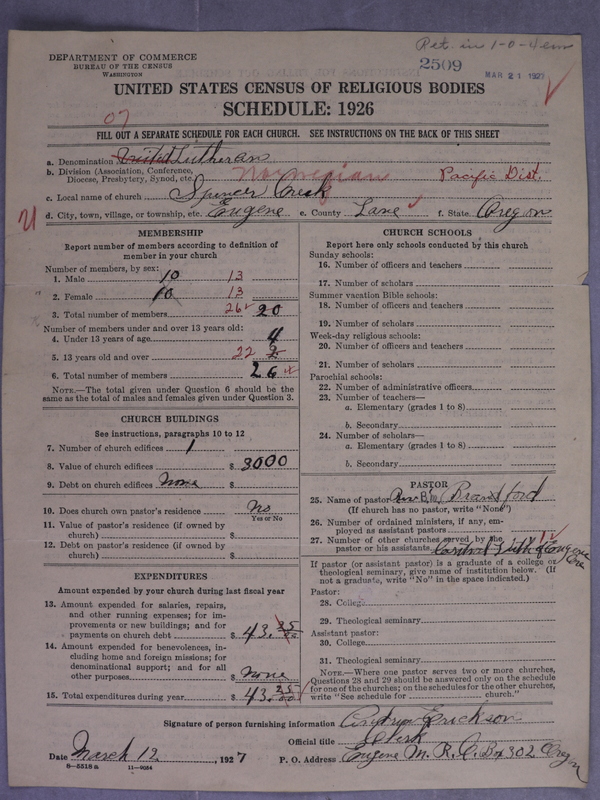 Ret. in 1-0-4 em
DEPARTMENT OF COMMERCE
BUREAU OF THE CENSUS
WASHINGTON
2509
MAR 21 1927
UNITED STATES CENSUS OF RELIGIOUS BODIES
SCHEDULE: 1926
07
FILL OUT A SEPARATE SCHEDULE FOR EACH CHURCH. SEE INSTRUCTIONS ON THE BACK OF THIS SHEET
a. Denomination United Lutheran
b. Division (Association, Conference, Diocese, Presbytery, Synod, etc. Norwegian Pacific Dist.
c. Local name of church Spencer Creek
d. City, town, village, or township, etc. Eugene e. County Lane f. State Oregon
MEMBERSHIP
Report number of members according to definition of
member in your church
Number of members, by sex:
1. Male 10 13
2. Female 10 13
3. Total number of members 26 20
Number of members under and over 13 years old:
4. Under 13 years of age 4
5. 13 years old and over 22 2
6. Total number of members 26
NOTE.—The total given under Question 6 should be the
same as the total of males and females given under Question 3.
CHURCH BUILDINGS
See instructions, paragraphs 10 to 12
7. Number of church edifices 1
8. Value of church edifices $ 3000
9. Debt on church edifices None $
10. Does church own pastor's residence No
Yes or No
11. Value of pastor's residence (if owned by
church) $
12. Debt on pastor's residence (if owned by
church) $
EXPENDITURES
Amount expended by your church during last fiscal year
13. Amount expended for salaries, repairs,
and other running expenses; for im-
provements or new buildings; and for
payments on church debt $ 43.25
14. Amount expended for benevolences, in-
cluding home and foreign missions; for
denominational support; and for all
other purposes $ None
15. Total expenditures during year $ 43.25
CHURCH SCHOOLS
Report here only schools conducted by this church
Sunday schools:
16. Number of officers and teachers
17. Number of scholars
Summer vacation Bible schools:
18. Number of officers and teachers
19. Number of scholars
Week-day religious schools:
20. Number of officers and teachers
21. Number of scholars
Parochial schools:
22. Number of administrative officers
23. Number of teachers—
a. Elementary (grades 1 to 8)
b. Secondary
24. Number of scholars—
a. Elementary (grades 1 to 8)
b. Secondary
PASTOR
25. Name of pastor Bransford
(If church has no pastor, write "None")
26. Number of ordained ministers, if any, em-
ployed as assistant pastors
27. Number of other churches served by the
pastor or his assistants 1 Central Luth of Eugene Ore
If pastor (or assistant pastor) is a graduate of a college or
theological seminary, give name of institution below. (If
not a graduate, write "No" in the space indicated.)
Pastor:
28. College
29. Theological seminary
Assistant pastor:
30. College
31. Theological seminary
NOTE.—Where one pastor serves two or more churches,
Questions 28 and 29 should be answered only on the schedule
for one of the churches; on the schedules for the other churches,
write "See schedule for ________ church."
Signature of person furnishing information Erickson
Official title Clerk
Date March 12, 1927 P. O. Address Eugene M. R. C. Bx 302 Oregon
8—5518 a 11—9064